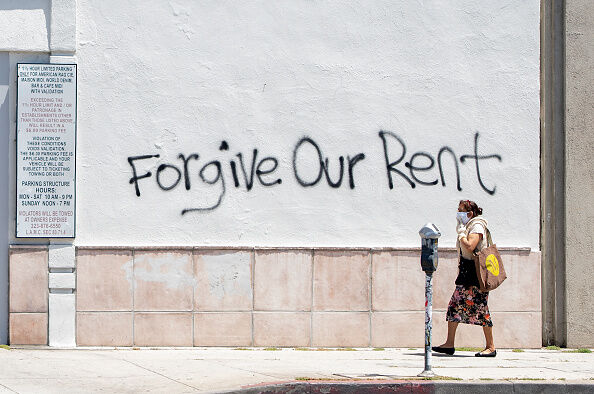 1½ HOUR LIMITED PARKING
ONLY FOR AMERICAN RAG CIE,
MAISON MIDI, WORLD DENIM,
BAR & CAFE MIDI
WITH VALIDATION
EXCEEDING THE
1½ HOUR LIMIT AND / OR
PATRONAGE IN
ESTABLISHMENTS OTHER
THAN THOSE LISTED ABOVE
WILL RESULT IN A
$6.00 PARKING FEE
VIOLATION OF
THESE CONDITIONS
VOIDS VALIDATION.
THE $6.00 PARKING FEE IS
APPLICABLE AND YOUR
VEHICLE WILL BE
SUBJECT TO TICKETING
TOWING OR BOTH
PARKING STRUCTURE
HOURS:
MON - SAT 10 AM - 9 PM
SUNDAY NOON - 7 PM
VIOLATORS WILL BE TOWED
AT OWNERS EXPENSE
L.A.M.C. SEC 80.71.4
Forgive Our Rent